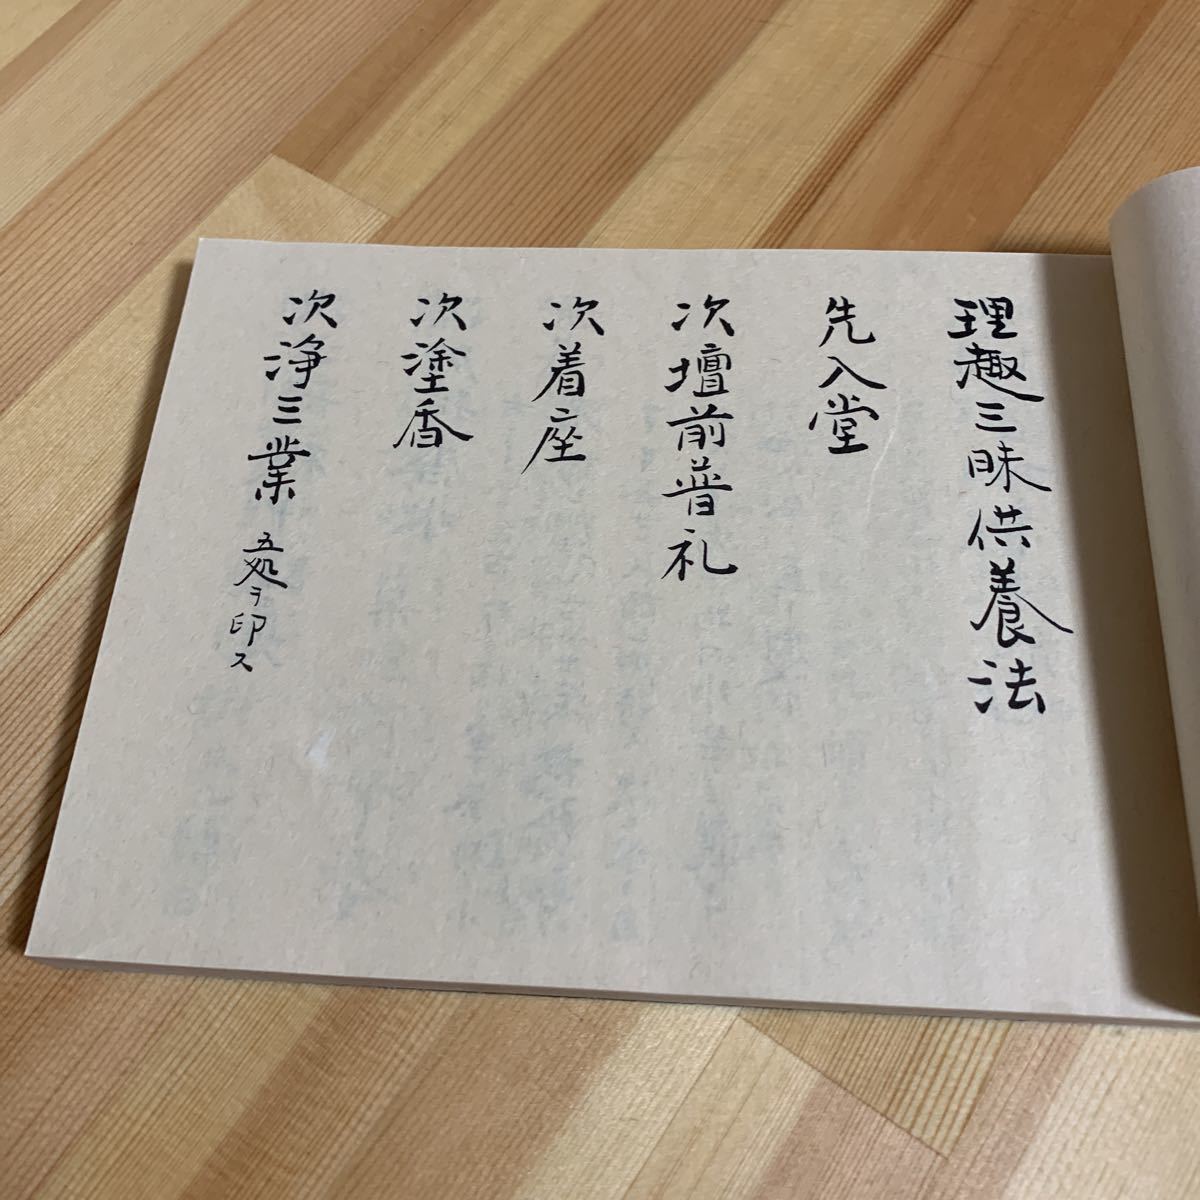 理趣三昧供養法
先入堂
次壇前普礼
次着座
次塗香
次浄三業 五処ヲ印ス